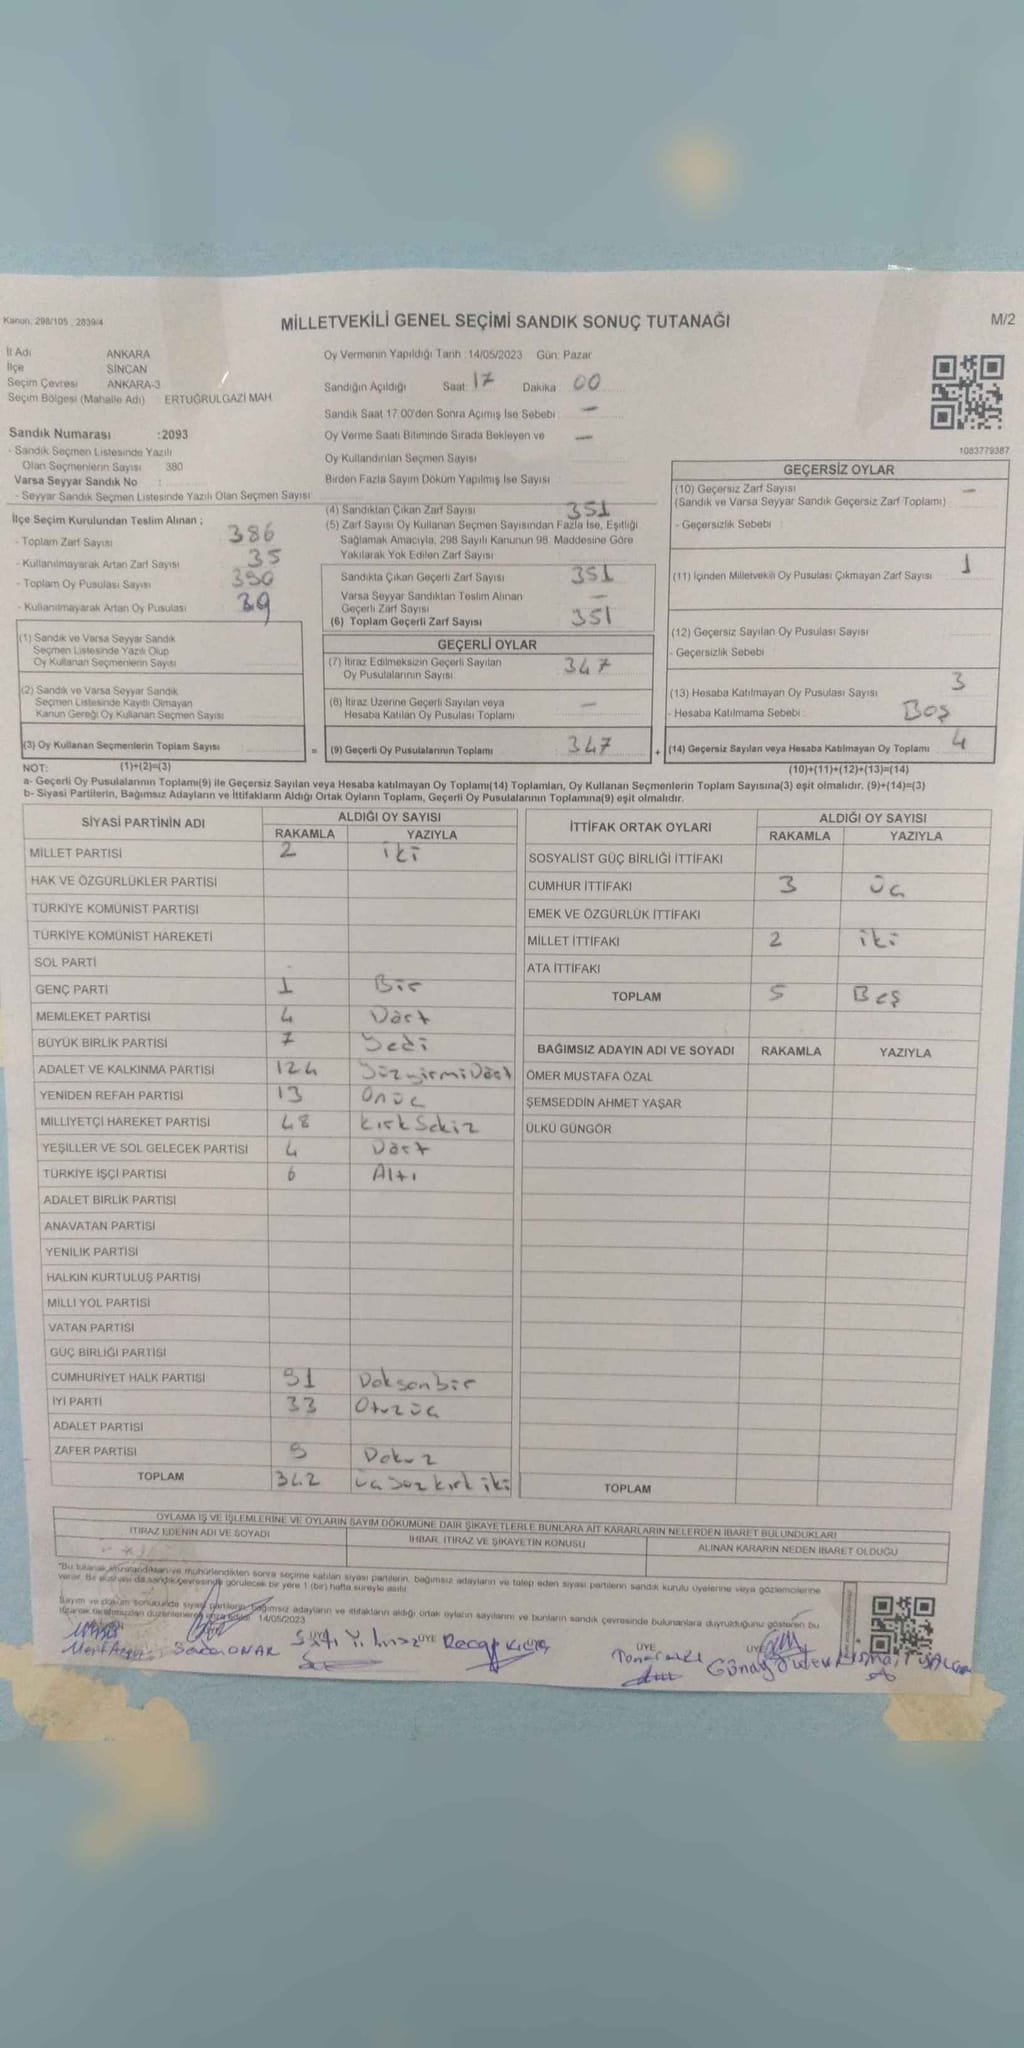 Kanun: 298/105 2839/4
MİLLETVEKİLİ GENEL SEÇİMİ SANDIK SONUÇ TUTANAĞI
M/2
İl Adı ANKARA
İlçe SİNCAN
Seçim Çevresi ANKARA-3
Seçim Bölgesi (Mahalle Adı) : ERTUĞRULGAZİ MAH.
Sandık Numarası :2093
- Sandık Seçmen Listesinde Yazılı
Olan Seçmenlerin Sayısı 380
Varsa Seyyar Sandık No :
- Seyyar Sandık Seçmen Listesinde Yazılı Olan Seçmen Sayısı
Oy Vermenin Yapıldığı Tarih :14/05/2023 Gün: Pazar
Sandığın Açıldığı Saat: 17 Dakika 00
Sandık Saat 17:00'den Sonra Açımış İse Sebebi -
Oy Verme Saati Bitiminde Sırada Bekleyen ve -
Oy Kullandırılan Seçmen Sayısı
Birden Fazla Sayım Döküm Yapılmış İse Sayısı
1083779387
İlçe Seçim Kurulundan Teslim Alınan ;
- Toplam Zarf Sayısı 386
- Kullanılmayarak Artan Zarf Sayısı 35
- Toplam Oy Pusulası Sayısı 390
- Kullanılmayarak Artan Oy Pusulası 39
(1) Sandık ve Varsa Seyyar Sandık
Seçmen Listesinde Yazılı Olup
Oy Kullanan Seçmenlerin Sayısı
(2) Sandık ve Varsa Seyyar Sandık
Seçmen Listesinde Kayıtlı Olmayan
Kanun Gereği Oy Kullanan Seçmen Sayısı
(3) Oy Kullanan Seçmenlerin Toplam Sayısı =
(4) Sandıktan Çıkan Zarf Sayısı 351
(5) Zarf Sayısı Oy Kullanan Seçmen Sayısından Fazla İse, Eşitliği
Sağlamak Amacıyla, 298 Sayılı Kanunun 98. Maddesine Göre
Yakılarak Yok Edilen Zarf Sayısı
Sandıkta Çıkan Geçerli Zarf Sayısı 351
Varsa Seyyar Sandıktan Teslim Alınan
Geçerli Zarf Sayısı -
(6) Toplam Geçerli Zarf Sayısı 351
GEÇERLİ OYLAR
(7) İtiraz Edilmeksizin Geçerli Sayılan
Oy Pusulalarının Sayısı 347
(8) İtiraz Üzerine Geçerli Sayılan veya
Hesaba Katılan Oy Pusulası Toplamı -
(9) Geçerli Oy Pusulalarının Toplamı 347 +
GEÇERSİZ OYLAR
(10) Geçersiz Zarf Sayısı -
(Sandık ve Varsa Seyyar Sandık Geçersiz Zarf Toplamı)
- Geçersizlik Sebebi :
(11) İçinden Milletvekili Oy Pusulası Çıkmayan Zarf Sayısı 1
(12) Geçersiz Sayılan Oy Pusulası Sayısı
- Geçersizlik Sebebi
(13) Hesaba Katılmayan Oy Pusulası Sayısı 3
- Hesaba Katılmama Sebebi : Boş
(14) Geçersiz Sayılan veya Hesaba Katılmayan Oy Toplamı 4
NOT: (1)+(2)=(3)
(10)+(11)+(12)+(13)=(14)
a- Geçerli Oy Pusulalarının Toplamı(9) ile Geçersiz Sayılan veya Hesaba katılmayan Oy Toplamı(14) Toplamları, Oy Kullanan Seçmenlerin Toplam Sayısına(3) eşit olmalıdır. (9)+(14)=(3)
b- Siyasi Partilerin, Bağımsız Adayların ve İttifakların Aldığı Ortak Oyların Toplamı, Geçerli Oy Pusulalarının Toplamına(9) eşit olmalıdır.
SİYASİ PARTİNİN ADI ALDIĞI OY SAYISI
RAKAMLA YAZIYLA
MİLLET PARTİSİ 2 iki
HAK VE ÖZGÜRLÜKLER PARTİSİ
TÜRKİYE KOMÜNİST PARTİSİ
TÜRKİYE KOMÜNİST HAREKETİ
SOL PARTİ
GENÇ PARTİ 1 Bir
MEMLEKET PARTİSİ 4 Dört
BÜYÜK BİRLİK PARTİSİ 7 Yedi
ADALET VE KALKINMA PARTİSİ 124 YüzyirmiDört
YENİDEN REFAH PARTİSİ 13 Onüç
MİLLİYETÇİ HAREKET PARTİSİ 48 Kırk Sekiz
YEŞİLLER VE SOL GELECEK PARTİSİ 4 Dört
TÜRKİYE İŞÇİ PARTİSİ 6 Altı
ADALET BİRLİK PARTİSİ
ANAVATAN PARTİSİ
YENİLİK PARTİSİ
HALKIN KURTULUŞ PARTİSİ
MİLLİ YOL PARTİSİ
VATAN PARTİSİ
GÜÇ BİRLİĞİ PARTİSİ
CUMHURİYET HALK PARTİSİ 91 Doksanbir
İYİ PARTİ 33 Otuzüç
ADALET PARTİSİ
ZAFER PARTİSİ 9 Dokuz
TOPLAM 342 üçyüz kırk iki
İTTİFAK ORTAK OYLARI ALDIĞI OY SAYISI
RAKAMLA YAZIYLA
SOSYALİST GÜÇ BİRLİĞİ İTTİFAKI
CUMHUR İTTİFAKI 3 üç
EMEK VE ÖZGÜRLÜK İTTİFAKI
MİLLET İTTİFAKI 2 iki
ATA İTTİFAKI
TOPLAM 5 Beş
BAĞIMSIZ ADAYIN ADI VE SOYADI RAKAMLA YAZIYLA
ÖMER MUSTAFA ÖZAL
ŞEMSEDDİN AHMET YAŞAR
ÜLKÜ GÜNGÖR
TOPLAM
OYLAMA İŞ VE İŞLEMLERİNE VE OYLARIN SAYIM DÖKÜMÜNE DAİR ŞİKAYETLERLE BUNLARA AİT KARARLARIN NELERDEN İBARET BULUNDUKLARI
İTİRAZ EDENİN ADI VE SOYADI İHBAR, İTİRAZ VE ŞİKAYETİN KONUSU ALINAN KARARIN NEDEN İBARET OLDUĞU
"Bu tutanak imzalandıktan ve mühürlendikten sonra seçime katılan siyasi partilerin, bağımsız adayların ve talep eden siyasi partilerin sandık kurulu üyelerine veya gözlemcilerine
verilir. Bir nüshası da sandık çevresinde görülecek bir yere 1 (bir) hafta süreyle asılır.
Sayım ve döküm sonucunda siyasi partilerin, bağımsız adayların ve ittifakların aldığı ortak oyların sayılarını ve bunların sandık çevresinde bulunanlara duyrulduğunu gösteren bu
tutanak tarafımızdan düzenlenerek imza edildi. 14/05/2023
ÜYE ÜYE ÜYE ÜYE
Seda ONAR